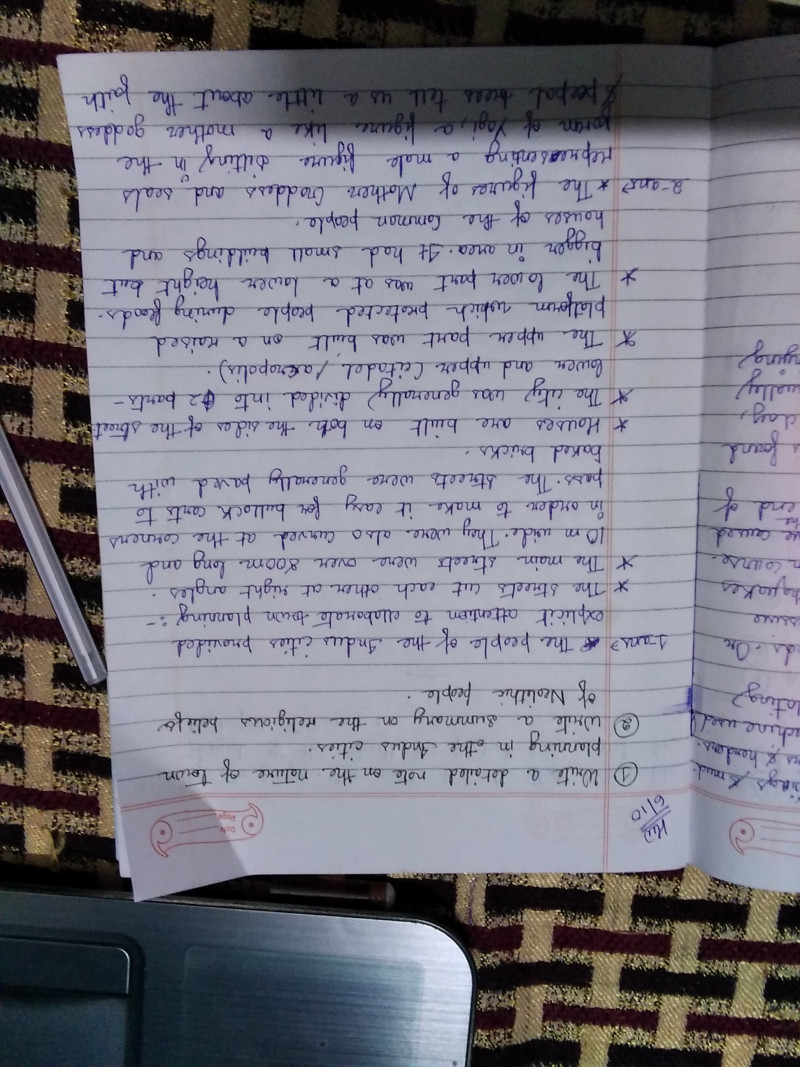 Date
Page
6/10
① Write a detailed note on the nature of town
planning in the Indus cities.
② Write a summary on the religious beliefs
of Neolithic people.
1-ans> * The people of the Indus cities provided
explicit attention to ellaborate town planning :-
* The streets cut each other at right angles.
* The main streets were over 800m long and
10 m wide. They were also curved at the corners
in order to make it easy for bullock carts to
pass. The streets were generally paved with
baked bricks.
* Houses are built on both the sides of the street.
* The city was generally divided into 2 parts -
lower and upper (citadel/acropolis).
* The upper part was built on a raised
platform which protected people during floods.
* The lower part was at a lower height but
bigger in area. It had small buildings and
houses of the common people.
2-ans> * The figures of Mother Goddess and seals
representing a male figure sitting in the
form of Yogi, a figure like a mother goddess
& peepal trees tell us a little about the faith
& herders.
machine used
course.
caused
the
end of
found
clay,